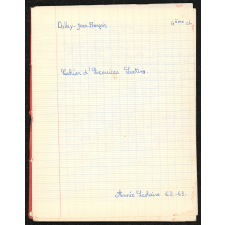 Jean-François 4ème
Cahier d'Exercices Latins.
Année Scolaire 62-63.